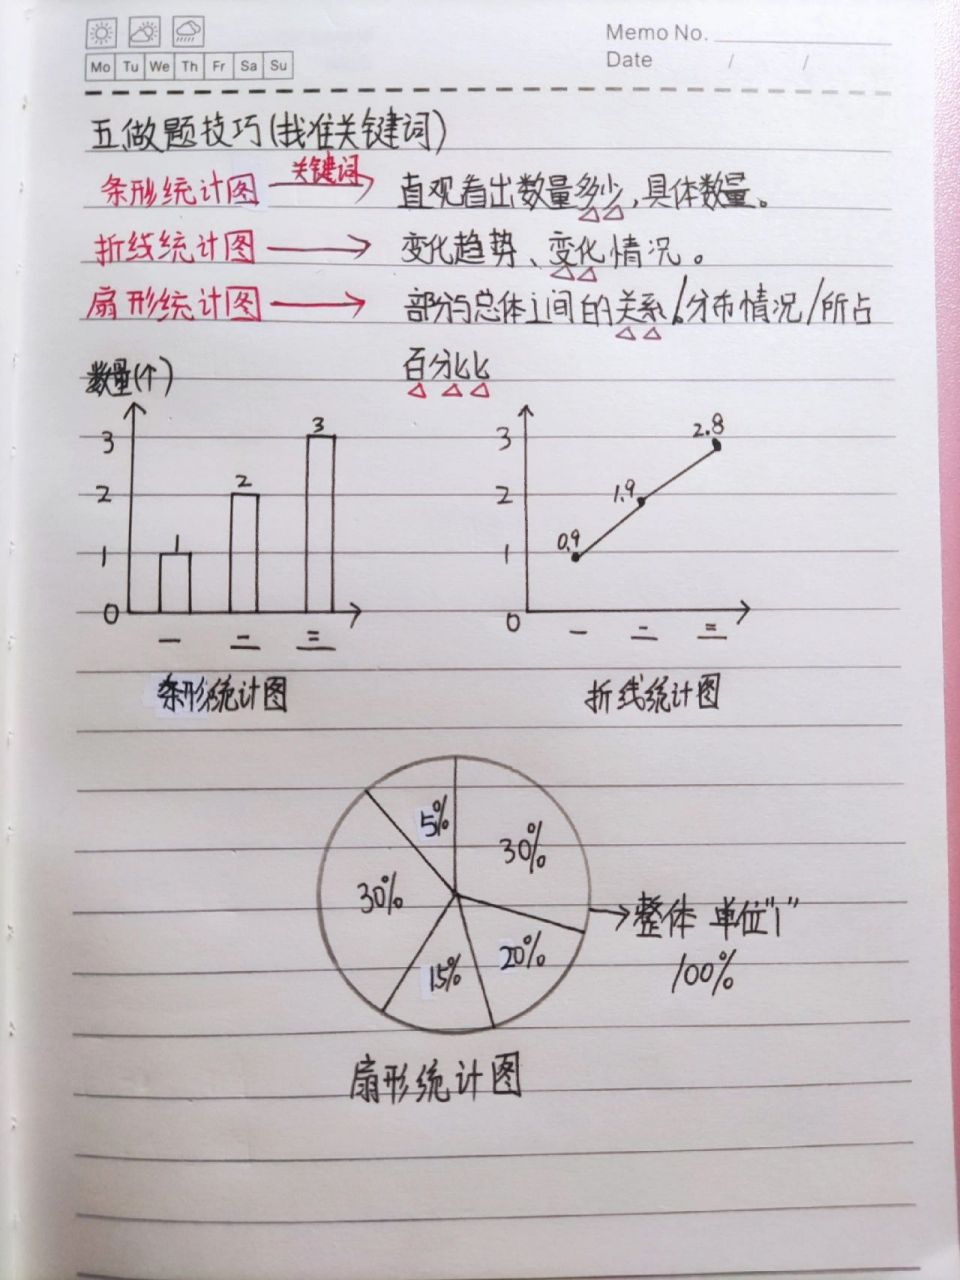 Memo No.
Mo Tu We Th Fr Sa Su
Date / /
五做题技巧(找准关键词)
条形统计图 关键词 → 直观看出数量多少,具体数量。
折线统计图 → 变化趋势、变化情况。
扇形统计图 → 部分与总体之间的关系/分布情况/所占
百分比
数量(个)
3
2
1
0
1
2
3
一 二 三
条形统计图
3
2
1
0
0.9
1.9
2.8
一 二 三
折线统计图
5%
30%
30%
20%
15%
→整体 单位"1"
100%
扇形统计图